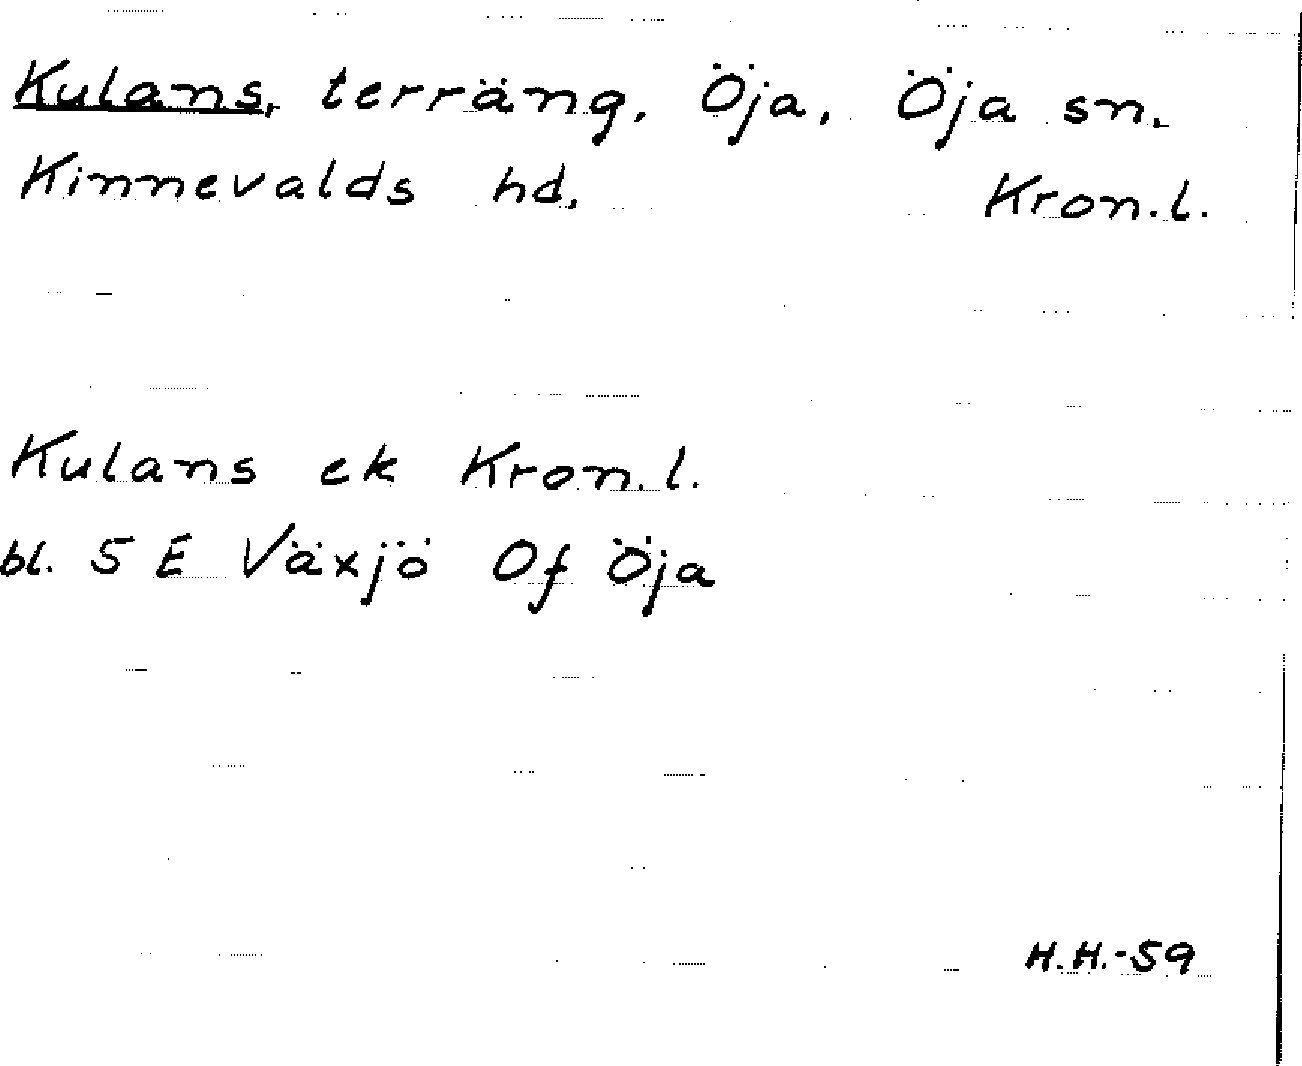 Kulans, terräng, Öja, Öja sn.
Kinnevalds hd. Kron.l.
Kulans ek Kron.l.
bl. 5 E Växjö Of Öja
H.H.-59